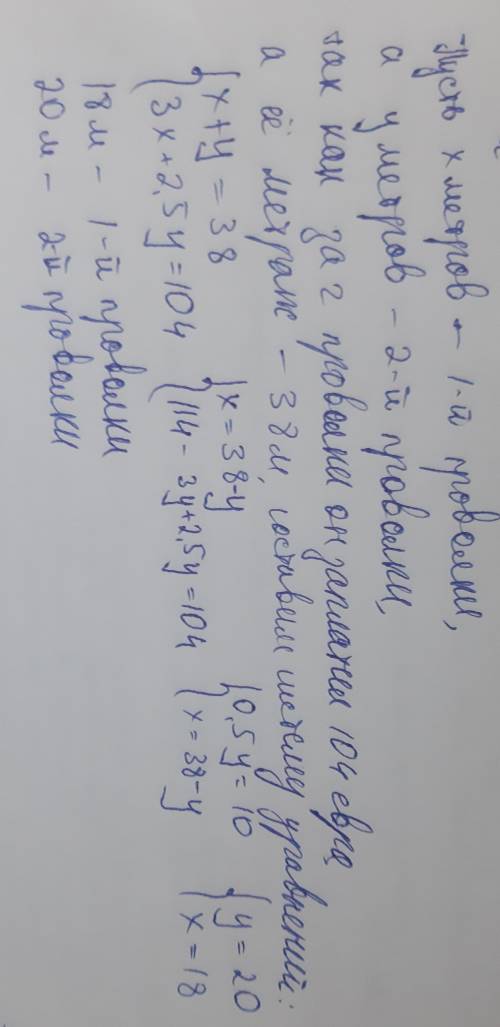 Пусть x метров – 1-й проволки,
а y метров – 2-й проволки,
так как за 2 проволки он заплатил 104 евро,
а её метраж – 38 м, составим систему уравнений:
{x+y=38 {x=38-y {0,5y=10 {y=20
{3x+2,5y=104 {114-3y+2,5y=104 {x=38-y {x=18
18 м – 1-й проволки
20 м – 2-й проволки